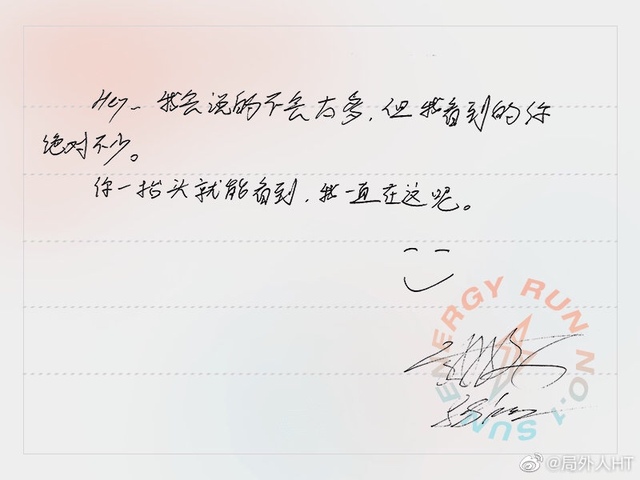 Hey~ 我会说的不会太多，但我看到的你
绝对不少。
你一抬头就能看到，我一直在这呢。
ENERGY RUN
NO.1 SUN
@局外人HT